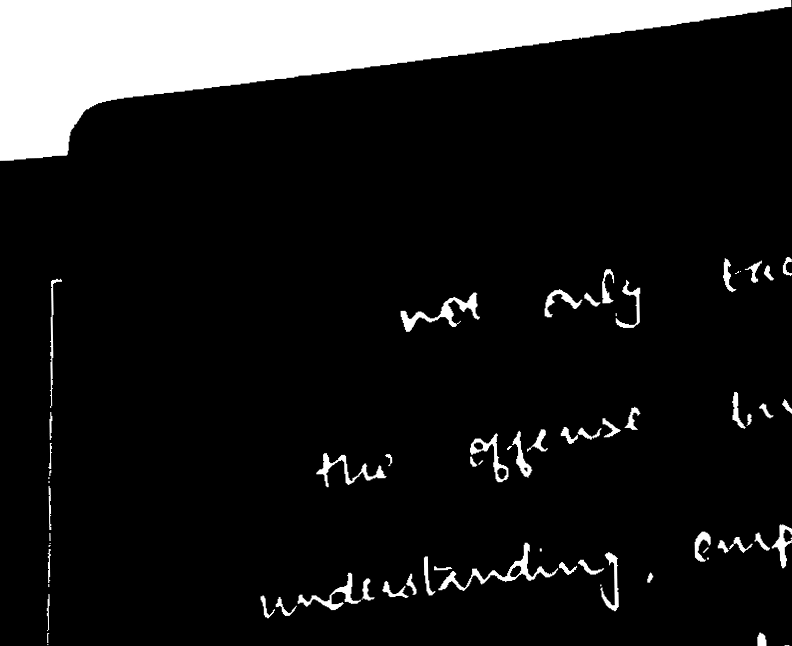 not only
the offense
understanding,